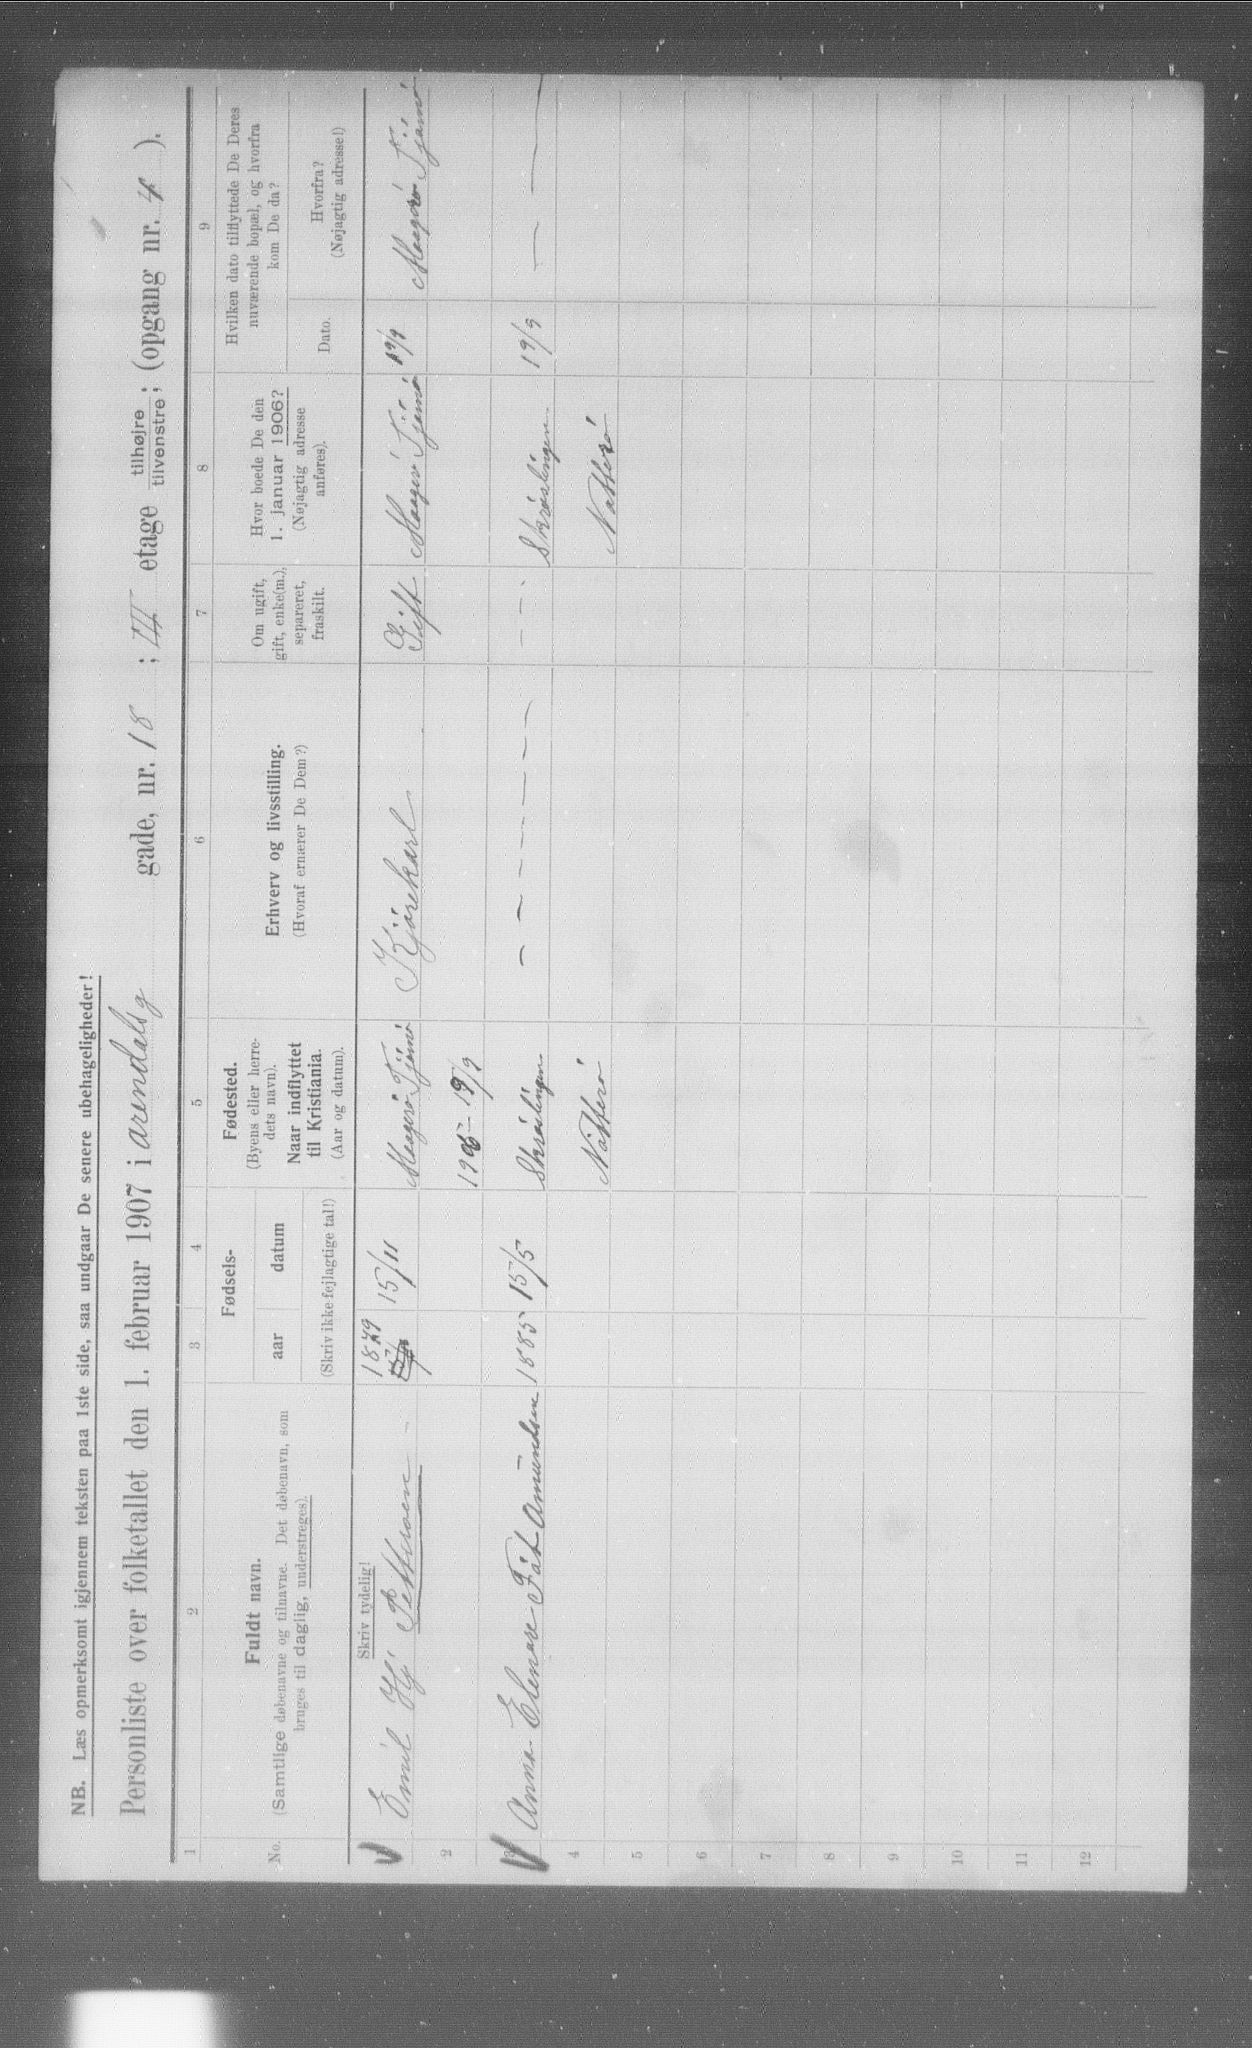 NB. Læs opmerksomt igjennem teksten paa 1ste side, saa undgaar De senere ubehageligheder!
Personliste over folketallet den 1. februar 1907 i arendalsg gade, nr. 18 ; III etage tilhøjre tilvenstre; (opgang nr. 4 ).
1 2 3 4 5 6 7 8 9
No.
Fuldt navn.
(Samtlige døbenavne og tilnavne. Det døbenavn, som
bruges til daglig, understreges).
Fødsels-
aar datum
(Skriv ikke fejlagtige tal!)
Fødested.
(Byens eller herre-
dets navn).
Naar indflyttet
til Kristiania.
(Aar og datum).
Erhverv og livsstilling.
(Hvoraf ernærer De Dem?)
Om ugift,
gift, enke(m.),
separeret,
fraskilt.
Hvor boede De den
1. januar 1906?
(Nøjagtig adresse
anføres).
Hvilken dato tilflyttede De Deres
nuværende bopæl, og hvorfra
kom De da?
Dato.
Hvorfra?
(Nøjagtig adresse!)
Skriv tydelig!
Emil Hj Pettersen 1879 15/11 Magerø Tjømø Kjørekarl Gift Maagerö Tjømø 19/9 Maagerø Tjømø
2 19/9
3 Anna Elenore Föt Amundsen 1885 15/5 Skräslingen – – – – – – – – – Skräslingen 19/9 – – –
4 Nøtterø Nøtterø
5
6
7
8
9
10
11
12